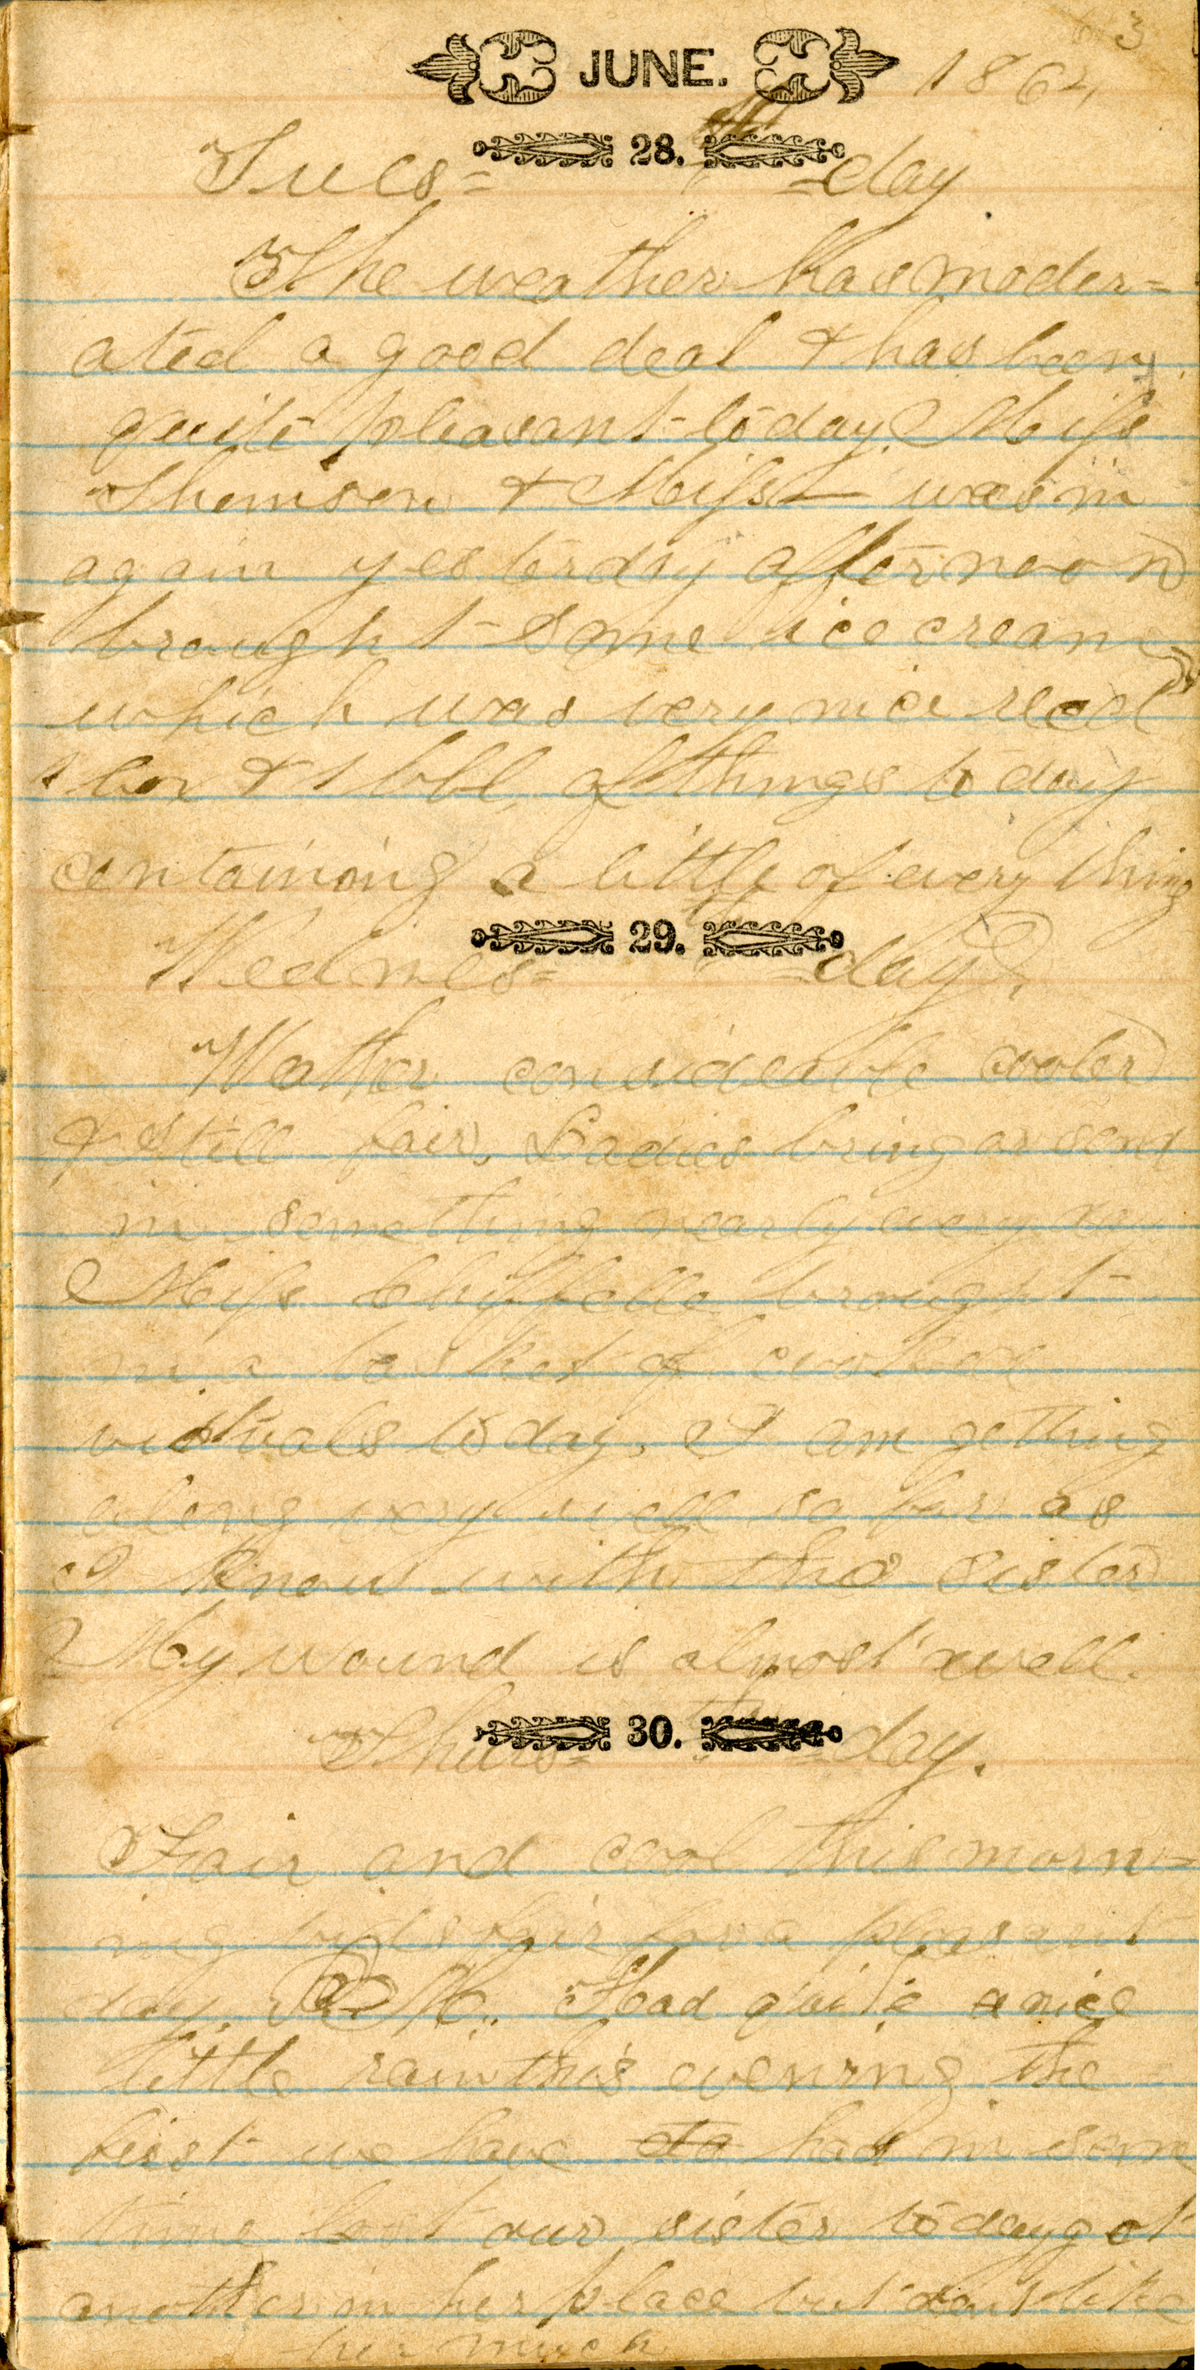 3
JUNE. 1864
Tues= 28. =day
The weather has moder=
ated a good deal & has been
quite pleasant today. Miss
Thomson & Miss — was in
again yesterday afternoon
brought some ice cream
which was very nice recd
1 box & 1 bbl of things to day
containing a little of every thing
Wednes= 29. =day.
Weather considerable cooler
& still fair, Ladies bring or send
in something nearly every day
Miss brought
in a basket of cooked
victuals to day. I am getting
along very well so far as
I know with the sister
My wound is almost well.
Thurs= 30. =day.
Fair and cool this morn=
ing bids fair for a pleasant
day. P.M. Had quite a nice
little rain this evening the
first we have had in some
time lost our sister to day got
another in her place but dont like
her much